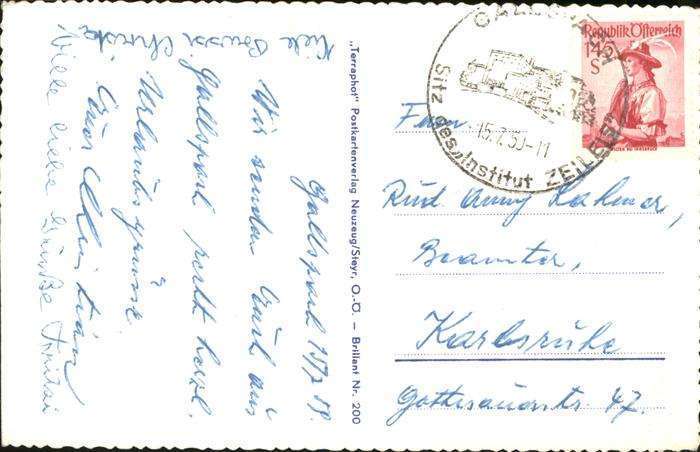 Gallspach 15/7.59.
Wir senden Euch aus
Gallspach recht herzl.
Urlaubsgrüsse
Euer Christian
Viele liebe Grüße
Viele Bussi Christa
„Terraphot" Postkartenverlag Neuzeug/Steyr, O.-Ö. – Brillant Nr. 200
Sitz des „Institut ZEILEIS"
15.7.59-11
Republik Österreich
1.45
S
Fam.
Rud. Anny
Beamter,
Karlsruhe
Gottesauerstr. 47.